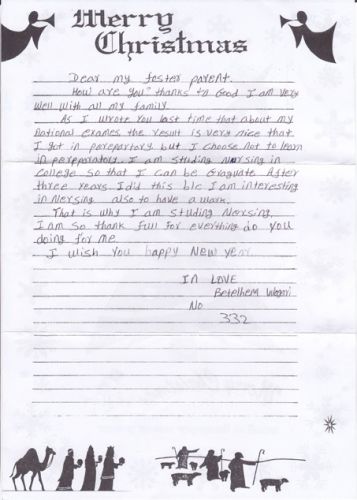 Merry
Christmas
Dear my foster parent.
How are you? thanks to Good I am very
well with all my family.
As I wrote you last time that about my
National exames the result is very nice that
I got in pereportory but I choose not to learn
in pereparatory. I am studing Nursing in
College so that I can be Graguate After
three years I did this b/c I am interesting
in Nersing also to have a work.
That is why I am studing Nersing.
I am so thank full for everything do you
doing for me.
I wish you happy New year.
IN LOVE
Betelhem
No
332